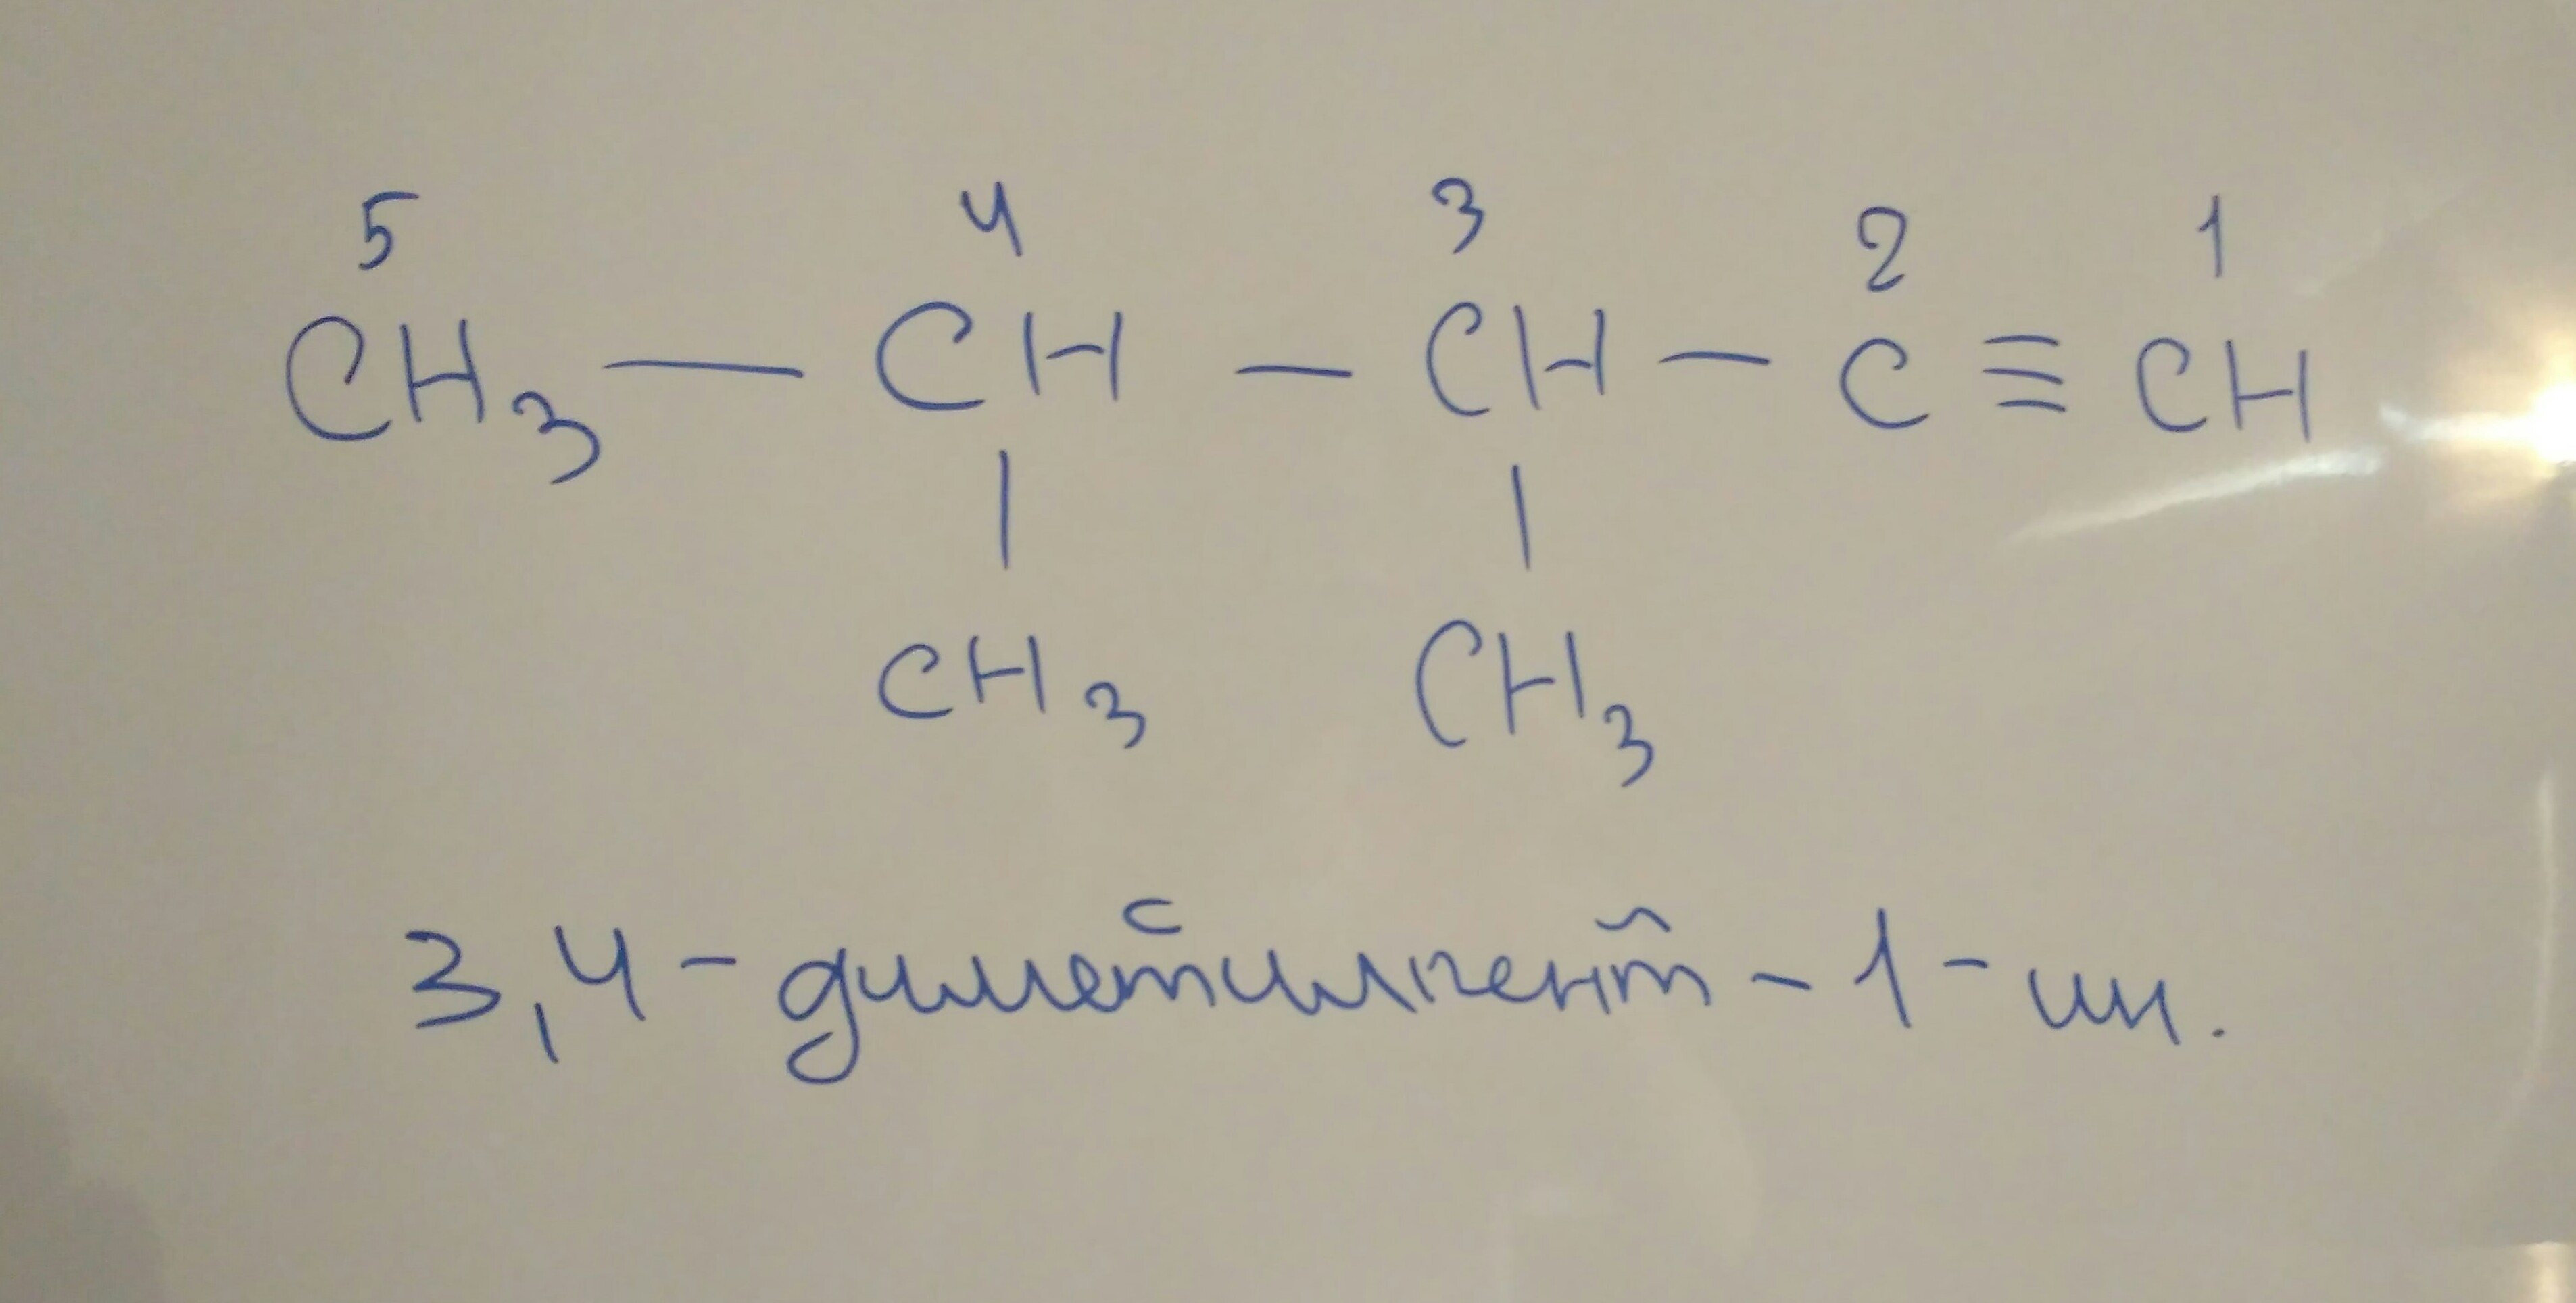 5 4 3 2 1
CH₃ — CH — CH — C ≡ CH
| |
CH₃ CH₃
3,4-диметилпент-1-ин.